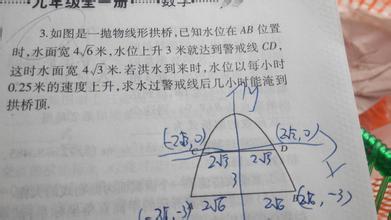 九年级全一册 数学
3.如图是一抛物线形拱桥,已知水位在 AB 位置
时,水面宽 4√6 米,水位上升 3 米就达到警戒线 CD,
这时水面宽 4√3 米.若洪水到来时,水位以每小时
0.25米的速度上升,求水过警戒线后几小时能淹到
拱桥顶.
y
(-2√3,0) (2√3,0)
C D x
2√3 2√3
3
(-2√6,-3) A 2√6 2√6 B (2√6,-3)